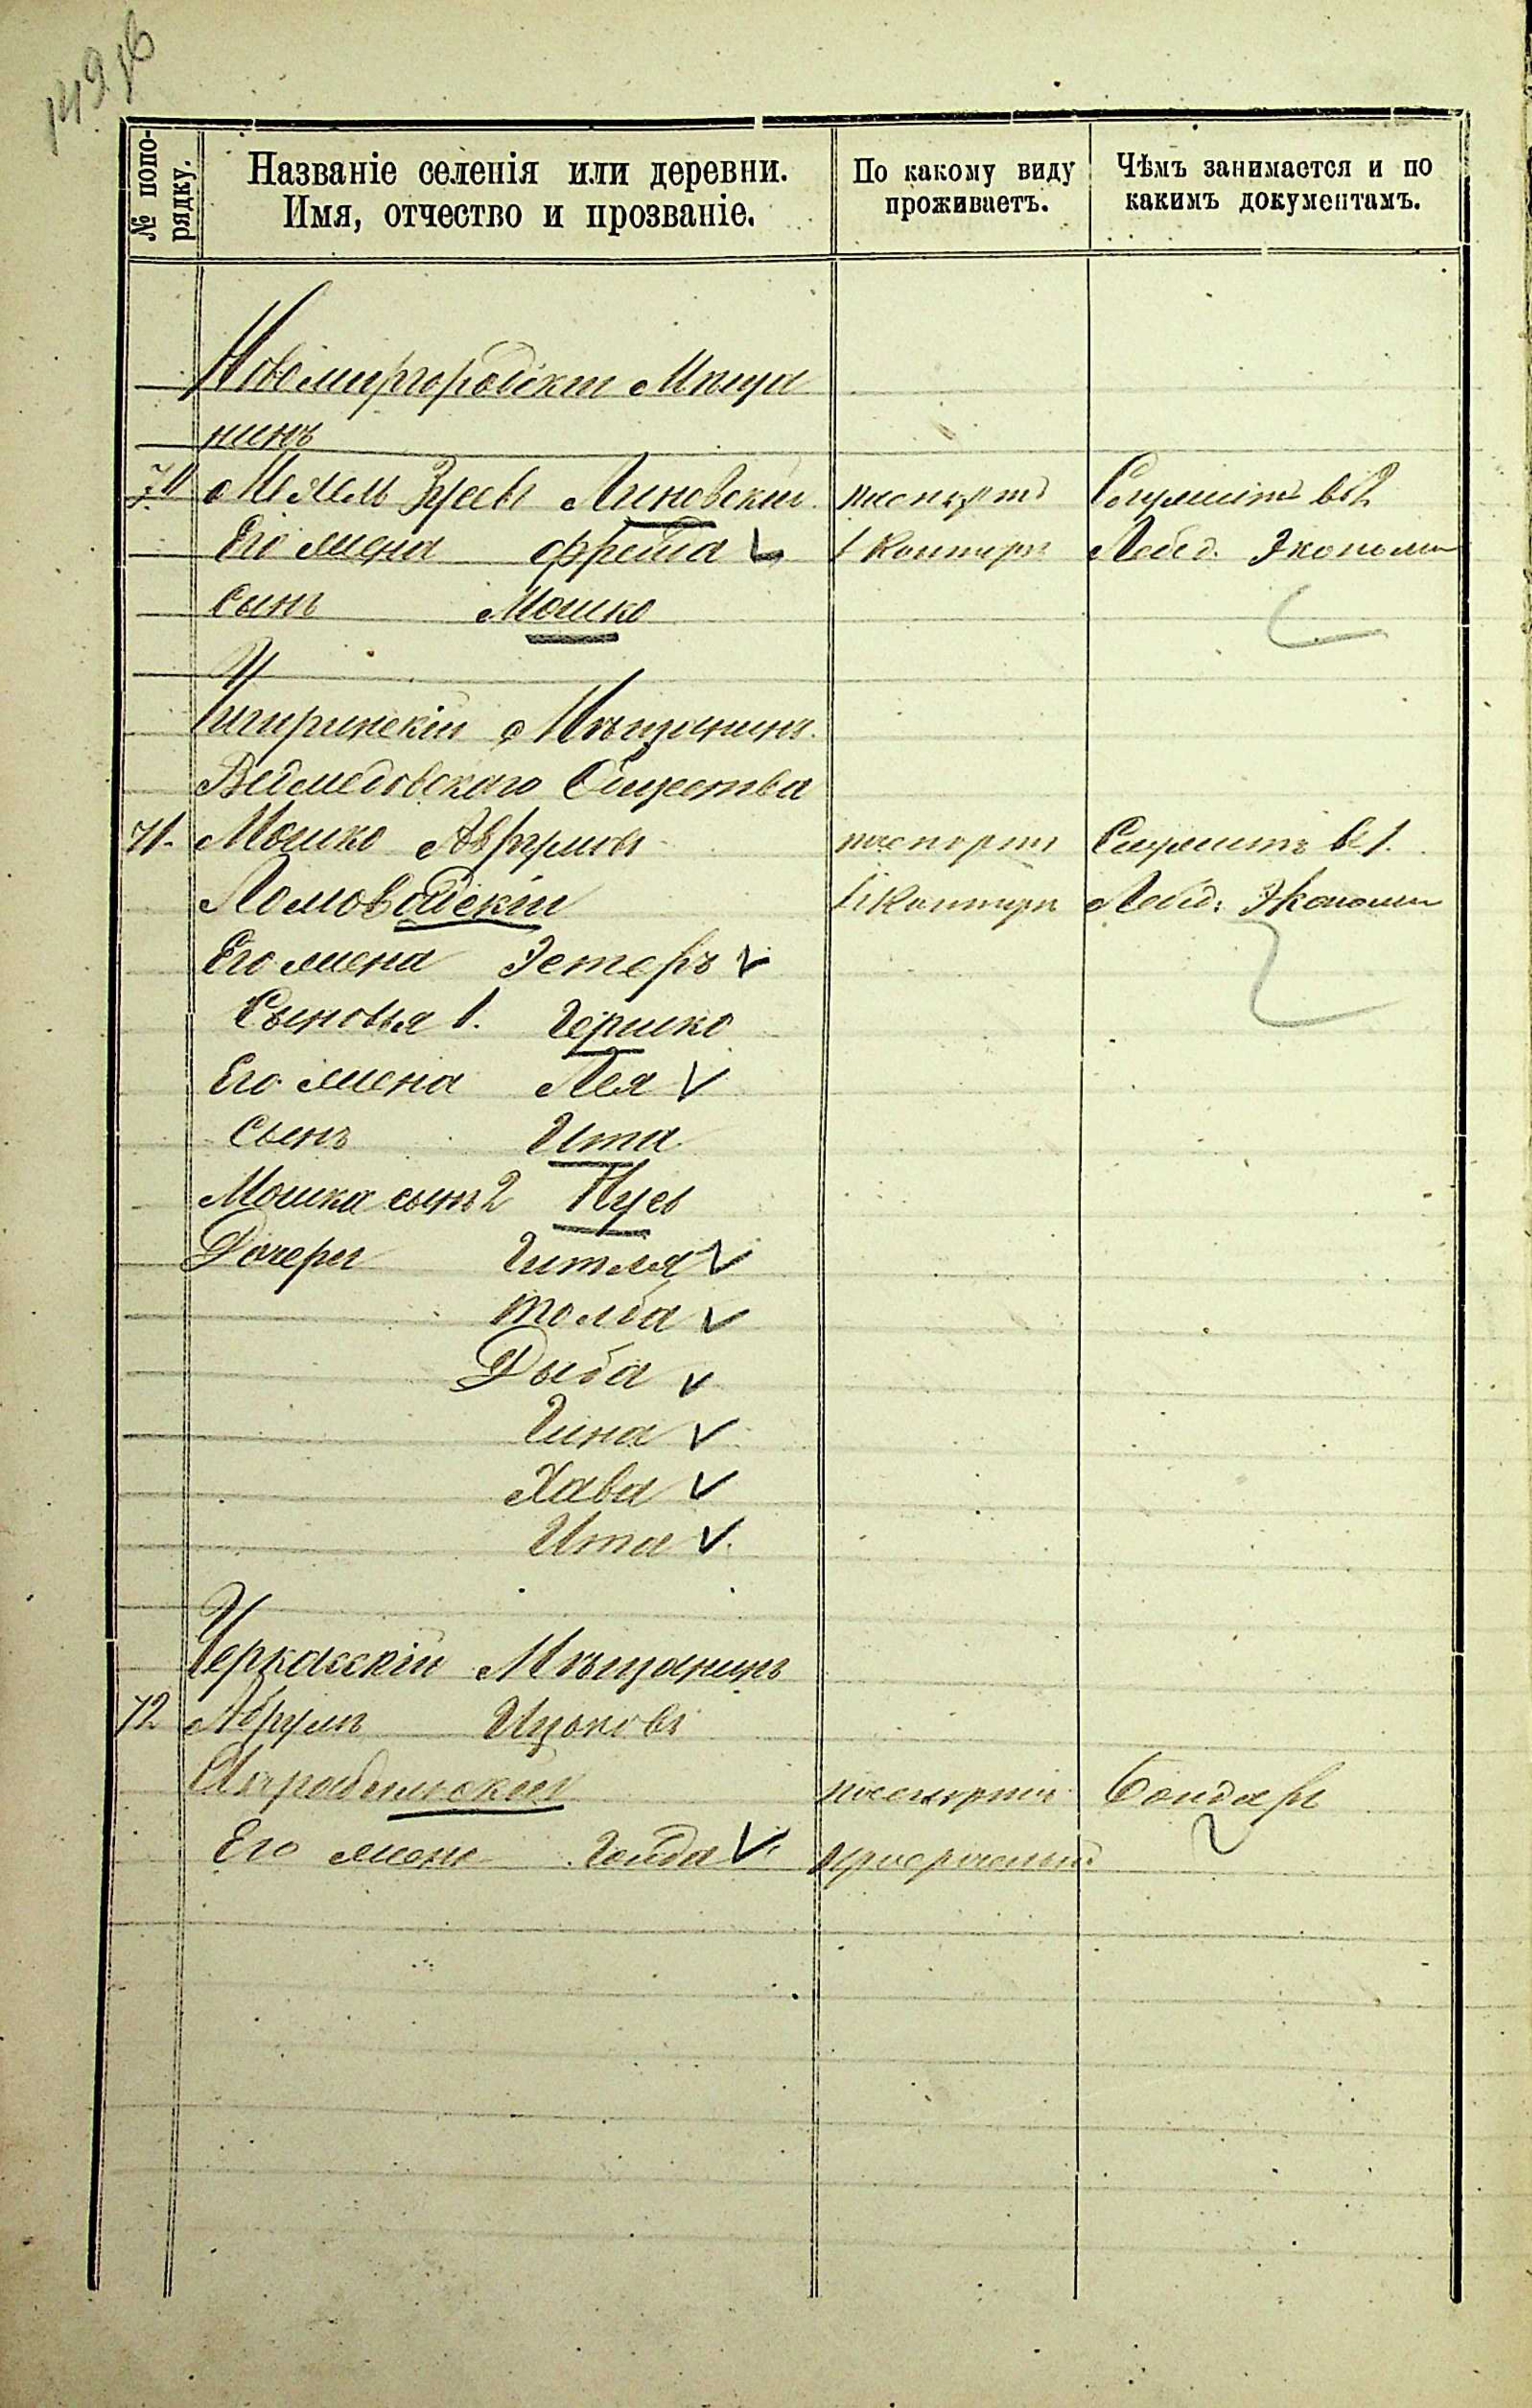 149 об
№ попо-
рядку.
Названіе селенія или деревни.
Имя, отчество и прозваніе.
По какому виду
проживаетъ.
Чѣмъ занимается и по
какимъ документамъ.
Новомиргородскій Мѣща
нинъ
70 Мехель Зусевъ Линовскій паспортъ Служитъ въ 2
Его жена Фрейда Лебед. Экономіи
Сынъ Мошко
Чигиринскій Мѣщанинъ
Ведмедовскаго Общества
71. Мошко Аврумовъ паспортъ Служитъ въ 1.
Помовойскій Лебед: Экономіи
Его жена Эстеръ
Сыновья 1. Гершко
Его жена Лея
Сынъ Ита
Мошка сынъ 2 Нусь
Дочери Гитля
Толба
Дыба
Гина
Хава
Ита
Черкасскій Мѣщанинъ
72 Абрумъ Ицьковъ
паспортъ Бондарь
Его жена Голда